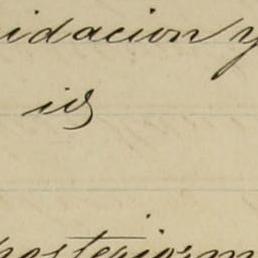 idacion y
id
posteriorm